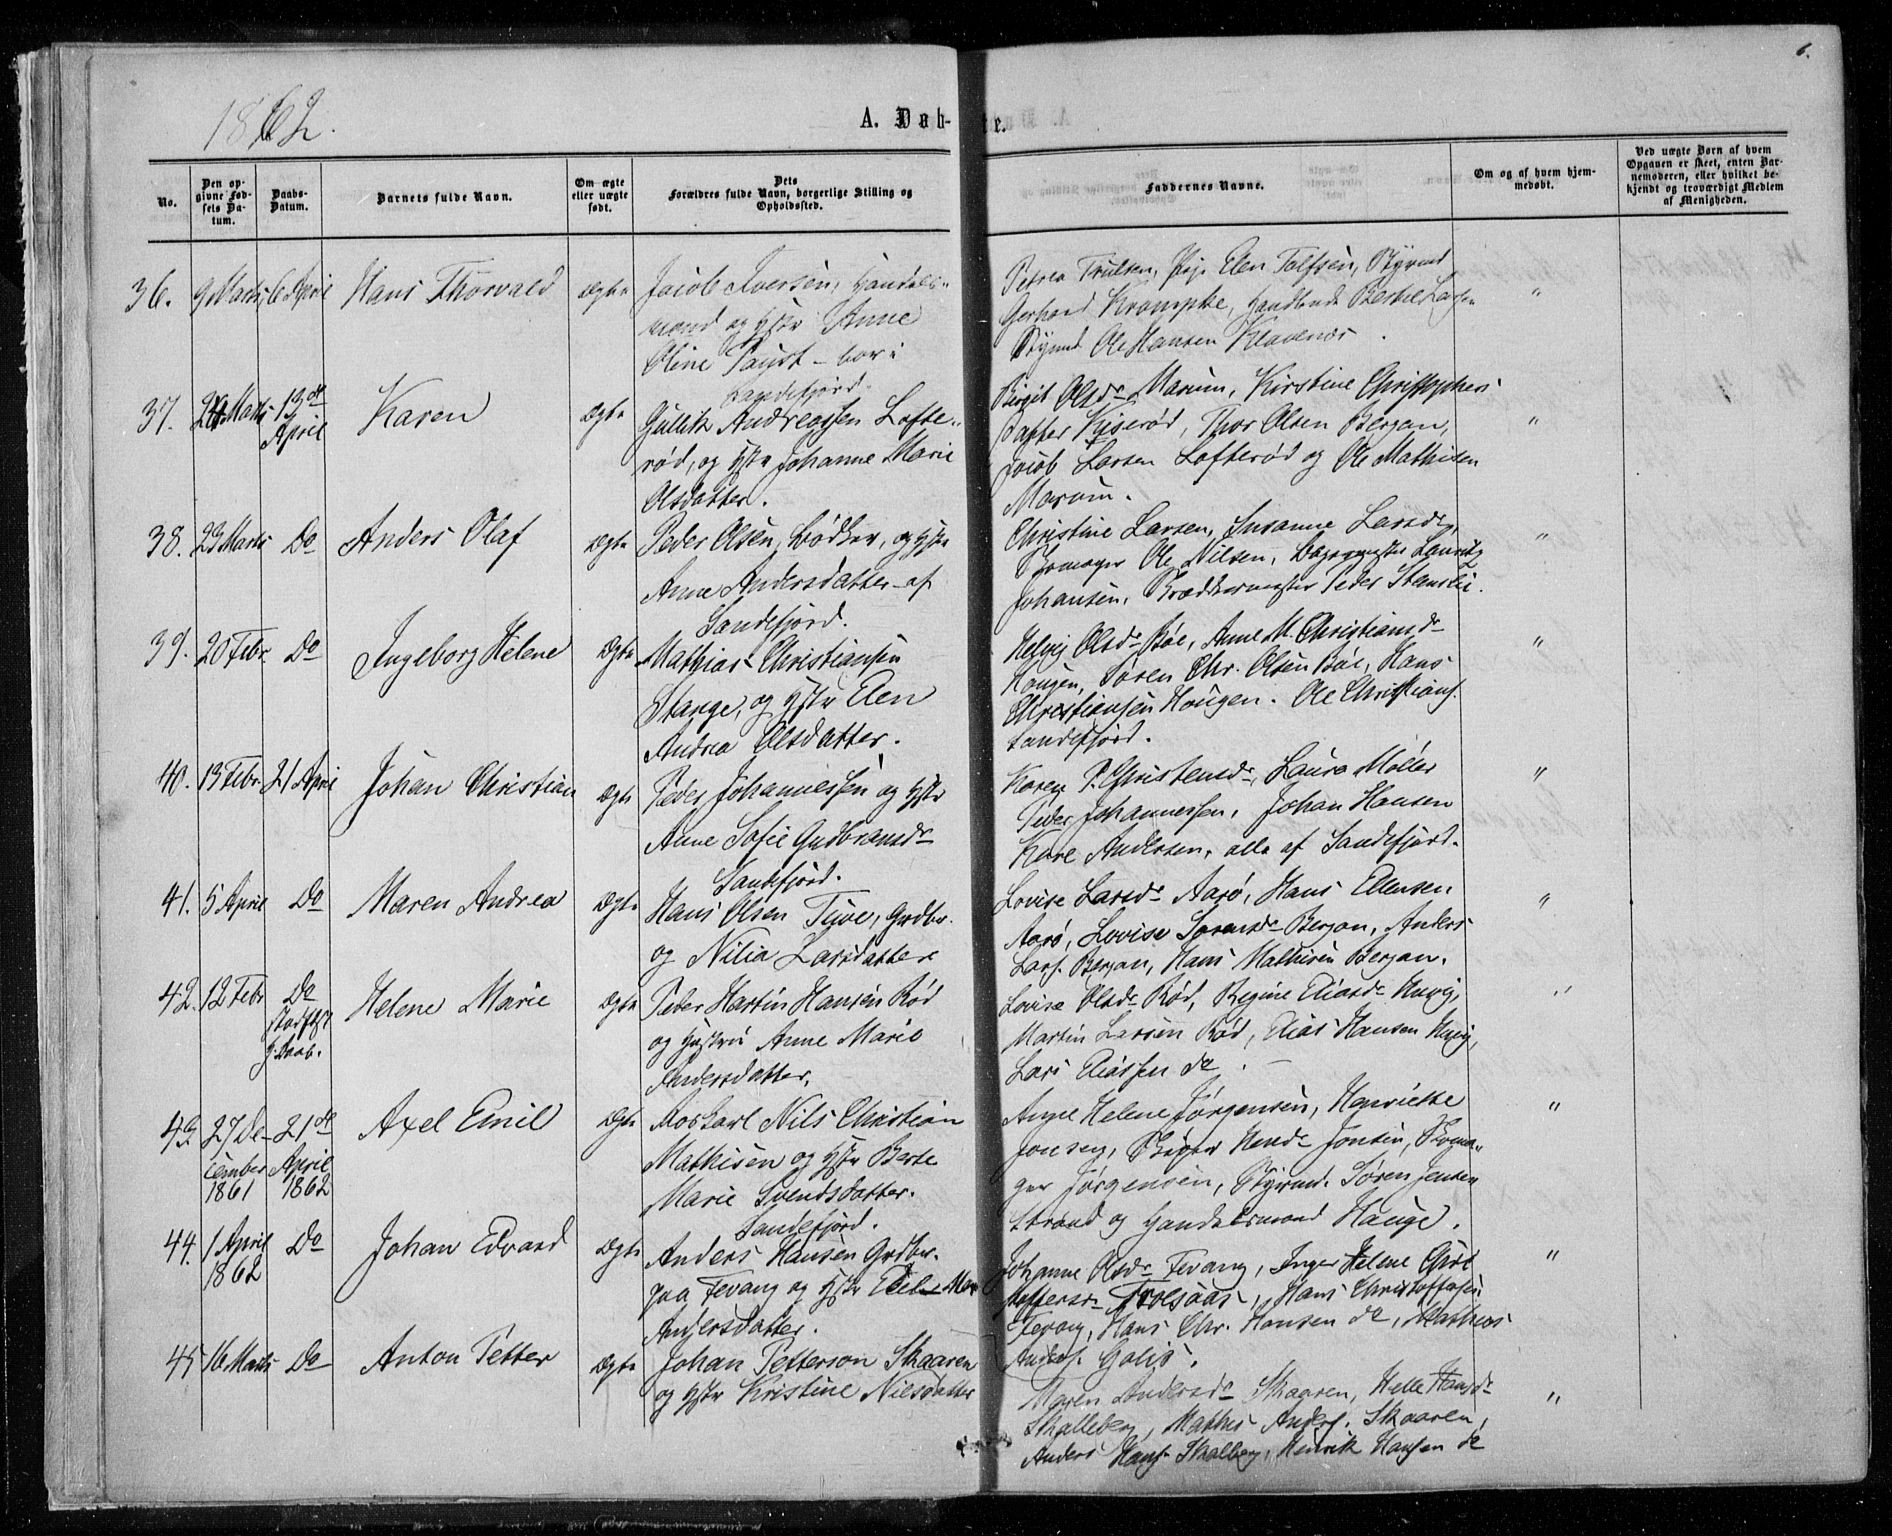 6.
1862.
A. Døb-
te.
No.
Den op-
givne Fød-
sels Da-
tum.
Daabs-
Datum.
Barnets fulde Navn.
Om ægte
eller uægte
født.
Dets
Forældres fulde Navn, borgerlige Stilling og
Opholdssted.
Faddernes Navne.
Om og af hvem hjem-
medøbt.
Ved uægte Børn af hvem
Opgaven er skeet, enten Bar-
nemoderen, eller hvilket be-
kjendt og troværdigt Medlem
af Menigheden.
36.
9 Marts
6 April
Hans Thorvald
Ægte
Jacob Iversen, Handels-
mand og Hstr Anne
Oline Faust - bor i
Sandefjord.
Petrea Trulsen, Pige Elen Tolfsen, Styrmd
Gerhard Krompke, Handlende Bertel Larsen
Styrmd Ole Hansen Klavenæs
"
37.
Marts
13de
April
Karen
Ægte
Gulik Andreassen Lofte-
rød, og Hstr Johanne Marie
Olsdatter.
Birgit Olsdr Marum, Kirstine Christophers
datter Kiserød, Thor Olsen Bergan,
Jacob Larsen Lofterød og Ole Mathisen
Marum.
"
38.
23 Marts
Do
Anders Olaf
Ægte
Peder Olsen, Bødker, og Hstr
Anne Andersdatter - af
Sandefjord.
Christine Larsen, Susanne Larsdr,
Skomager Ole Nilsen, Bagermester Lauritz
Johansen, Skræddermester Peder Stenslie.
"
39.
20 Febr.
Do
Ingeborg Helene
Ægte
Mathias Christiansen
Stange, og Hstr Elen
Andrea Olsdatter.
Helvig Olsdr Bøe, Anne M. Christiansdr
Hougen, Søren Chr. Olsen Bøe, Hans
Christiansen Hougen. Ole Christians.
Sandefjord.
"
40.
13 Febr.
21 April
Johan Christian
Ægte
Peder Johannessen og Hstr
Anne Sofie Gudbransdr
Sandefjord.
Karen P. Christensdr, Laura Møller
Peder Johannessen, Johan Hansen
Kare Andersen, alle af Sandefjord.
"
41.
5 April
Do
Maren Andrea
Ægte
Hans Olsen Tuve, Grdbr.
og Nilia Larsdatter
Lovise Larsdr Aarø, Hans Ellensen
Aarø, Lovise Sørensdr Bergan, Anders
Lars. Bergan, Hans Mathisen Bergan.
"
42.
12 Febr
Do
Stadfst
Hj. Daab.
Helene Marie
Ægte
Peder Martin Hansen Rød
og Hustru Anne Marie
Andersdatter.
Lovise Olsdr Rød, Regine Eliasdr Huvig,
Martin Larsen Rød, Elias Hansen Huvig,
Lars Eliassen do.
"
43.
27 De-
cember
1861
21de
April
1862
Axel Emil
Ægte
Roskarl Nils Christian
Mathisen og Hstr Berte
Marie Svendsdatter.
Sandefjord.
Ane Helene Jørgensen, Henriette
Jonsen, Skipper Jonsen, Skoma-
ger Jørgensen, Styrmd. Søren Jensen
Strand og Handelsmand Hauge.
"
44.
1 April
1862
Do
Johan Edvard
Ægte
Anders Hansen Grdbr.
paa Fevang og Hstr Mar
Andersdatter.
Johanne Olsdr Fevang, Inger Helene Chri
stoffersdr Trolsaas, Hans Christoffersen
Fevang, Hans Chr. Hansen do, Mathias
Anders. Golis.
"
45
16 Marts
Do
Anton Petter
Ægte
Johan Petterson Skaaren
og Hstr Kristine Nilsdatter
Maren Andersdr Skaaren, Helle Hansdr
Skalleberg, Mathis Anders. Skaaren,
Anders Hans. Skalberg, Henrik Hansen do
"